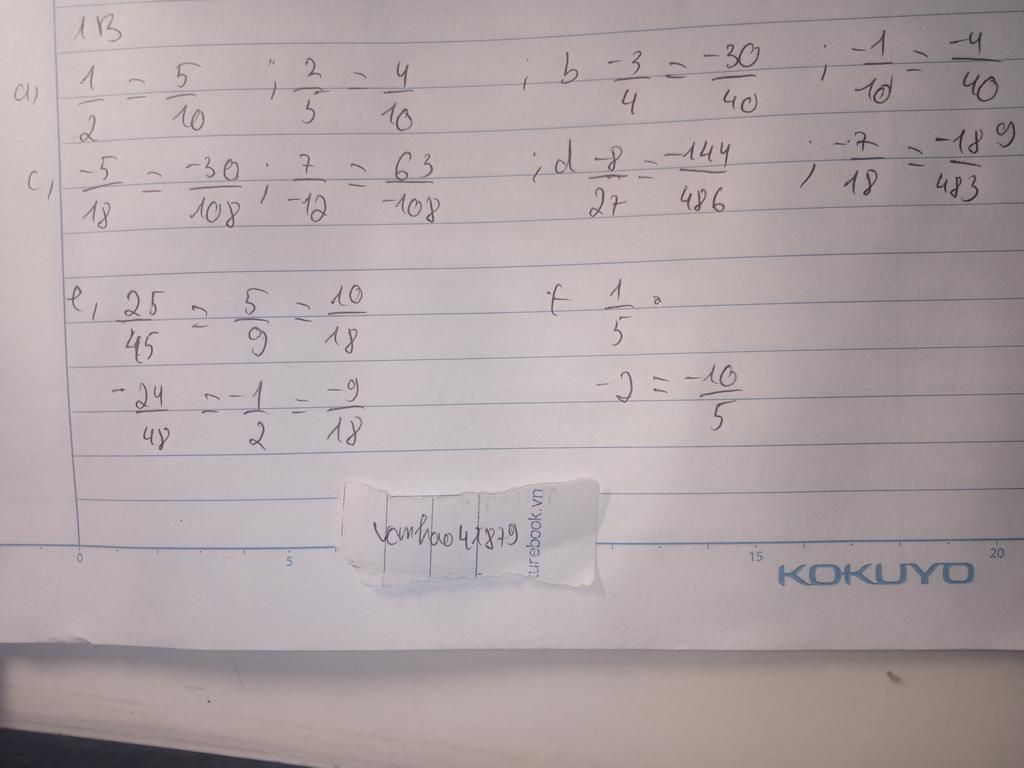 1B
a, 1/2 = 5/10 ; 2/5 = 4/10 ; b -3/4 = -30/40 ; -1/10 = -4/40
c, -5/18 = -30/108 ; 7/-12 = 63/-108 ; d -8/27 = -144/486 ; -7/18 = -189/483
e, 25/45 = 5/9 = 10/18 f 1/5 .
-24/48 = -1/2 = -9/18 -2 = -10/5
vanhao41879
turebook.vn
0 5 15 20
KOKUYO